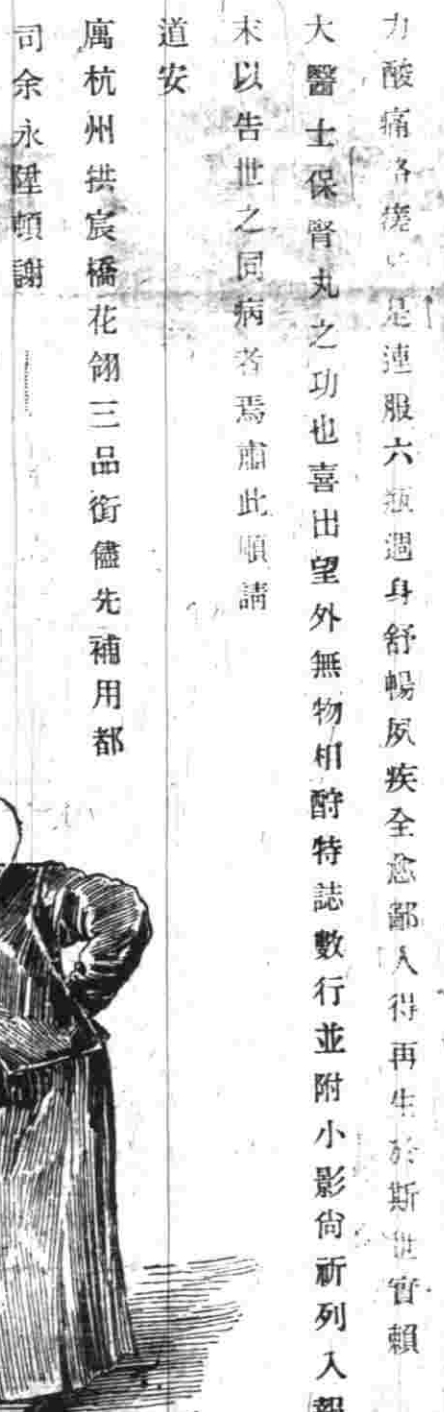 力酸痛洛是連服六瓶週身舒暢夙疾全愈鄙人得再生於斯世實賴
大醫士保腎丸之功也喜出望外無物相酧特誌數行並附小影尙祈列入報
末以告世之同病者焉肅此順請
道安
寓杭州拱宸橋花翎三品銜儘先補用都
司余永陞頓謝